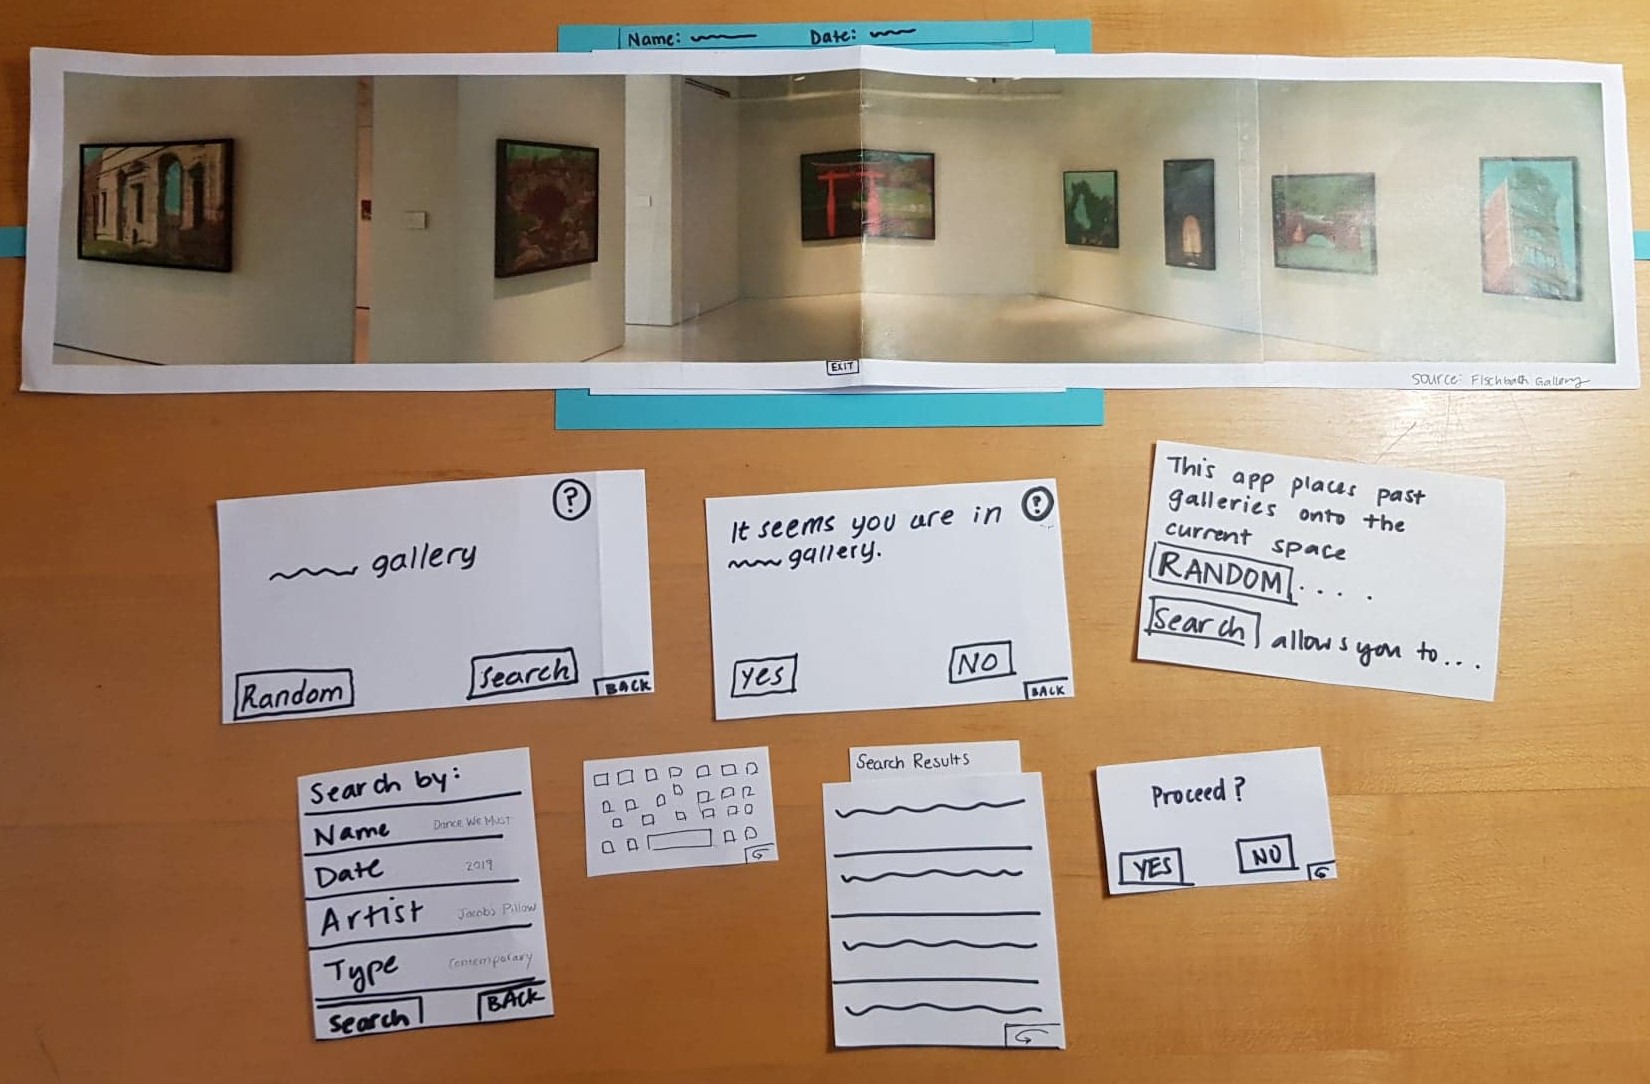 Name: Date:
EXIT
Source: Fischbach Gallery
?
gallery
Random Search BACK
It seems you are in ?
gallery.
yes NO BACK
This app places past
galleries onto the
current space
RANDOM . . . .
Search allows you to...
Search by:
Name Dance We Must
Date 2019
Artist Jacobs Pillow
Type Contemporary
Search BACK
Search Results
Proceed?
YES NO